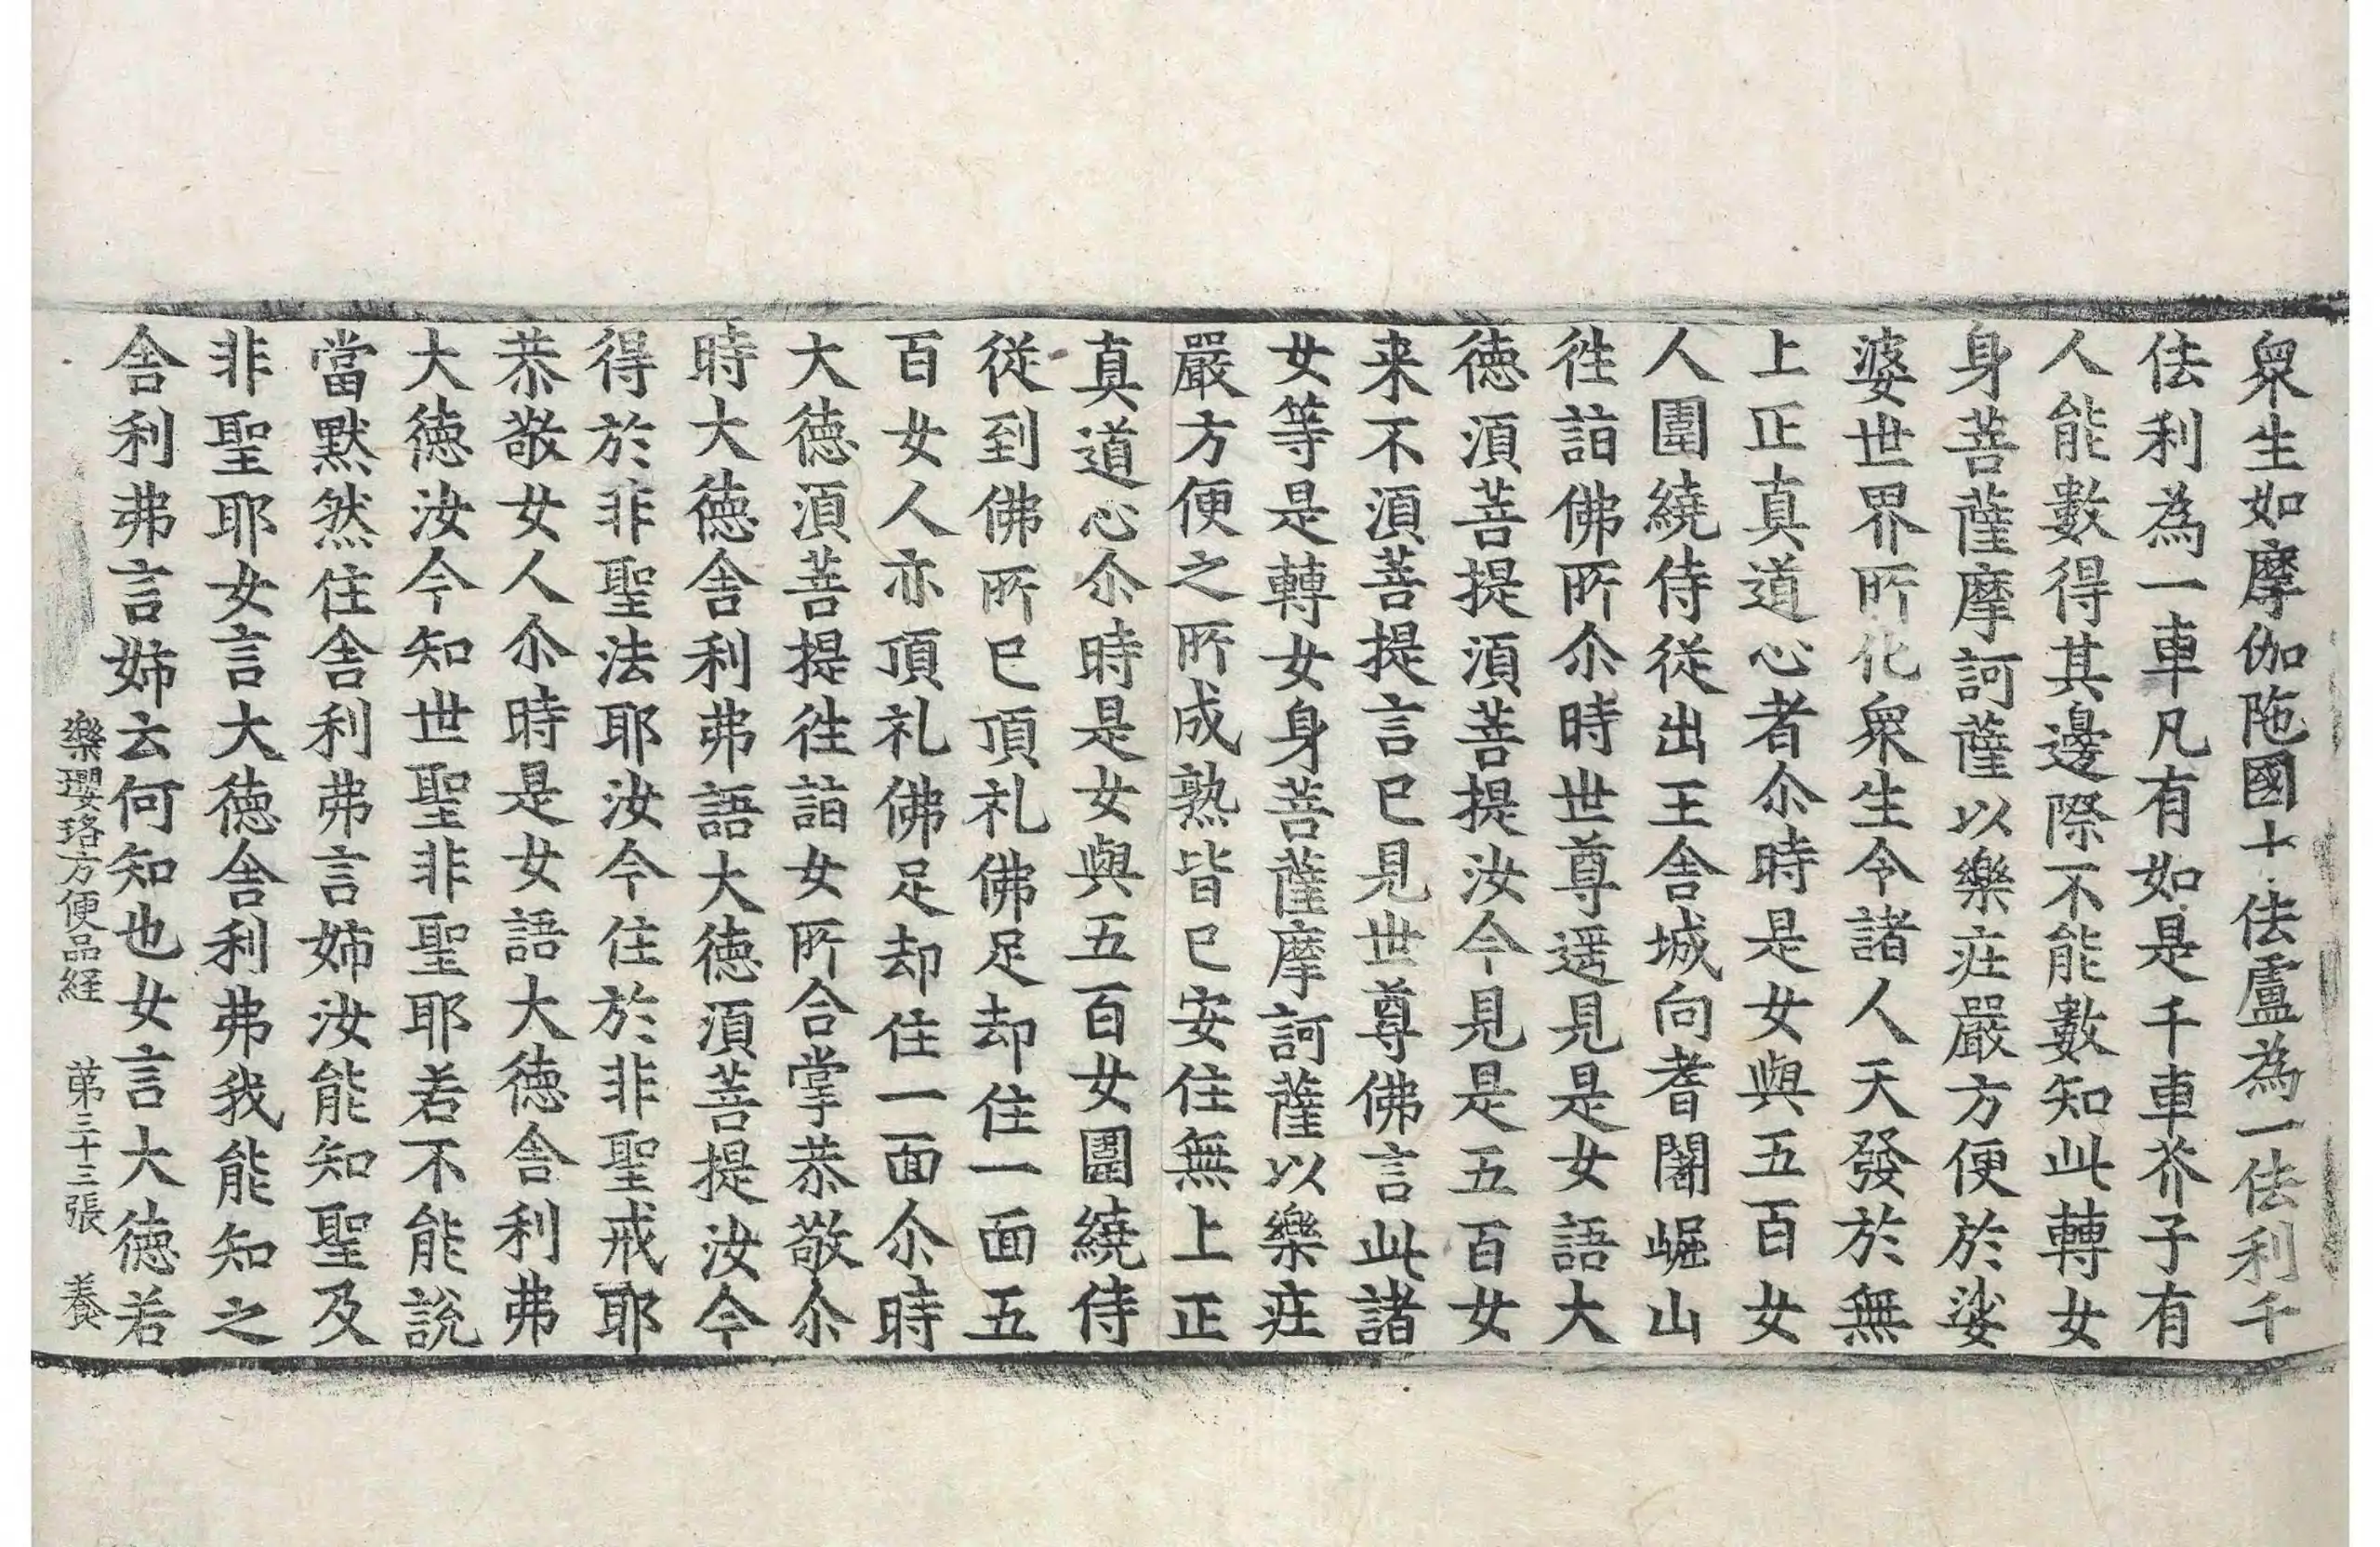 衆生如摩伽陁國十佉盧為一佉利千
佉利為一車凡有如是千車芥子有
人能數得其邊際不能數知此轉女
身菩薩摩訶薩以樂疘嚴方便於娑
婆世界所化衆生令諸人天發於無
上正真道心者尒時是女與五百女
人圍繞侍從出王舍城向耆闍崛山
徃詣佛所尒時世尊遥見是女語大
徳湏菩提湏菩提汝今見是五百女
来不湏菩提言已見世尊佛言此諸
女等是轉女身菩薩摩訶薩以樂疘
嚴方便之所成熟皆已安住無上正
真道心尒時是女與五百女圍繞侍
從到佛所已頂礼佛足却住一面五
百女人亦頂礼佛足却住一面尒時
大徳湏菩提徃詣女所合掌恭敬尒
時大徳舍利弗語大徳湏菩提汝今
得於非聖法耶汝今住於非聖戒耶
恭敬女人尒時是女語大徳舍利弗
大徳汝今知世聖非聖耶若不能說
當黙然住舍利弗言姉汝能知聖及
非聖耶女言大徳舍利弗我能知之
舍利弗言姉云何知也女言大徳若
樂瓔珞方便品経 苐三十三張 養